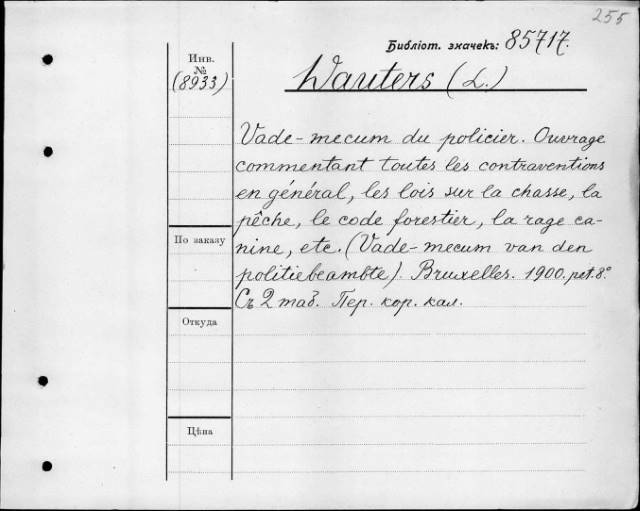 255
Библіот. значекъ: 85717.
Инв.
№
(8933)
Wauters (L.)
Vade-mecum du policier. Ouvrage
commentant toutes les contraventions
en général, les lois sur la chasse, la
pêche, le code forestier, la rage ca-
nine, etc. (Vade-mecum van den
politiebeambte). Bruxelles. 1900. pet. 8°
Съ 2 таб. Пер. кор. кал.
По заказу
Откуда
Цѣна